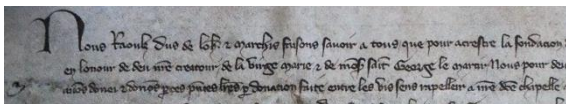 Nous Raoulz dus de Loh. & marchis faisons savoir a tous que pour acrestre la fondacion
en lonour de deu nre creatour de la virge marie & de mons. saint George le martir Nous pour deu
donei & donons par ces pntes lres par donation faite entre les vis sens rapeller a nre dite chapelle